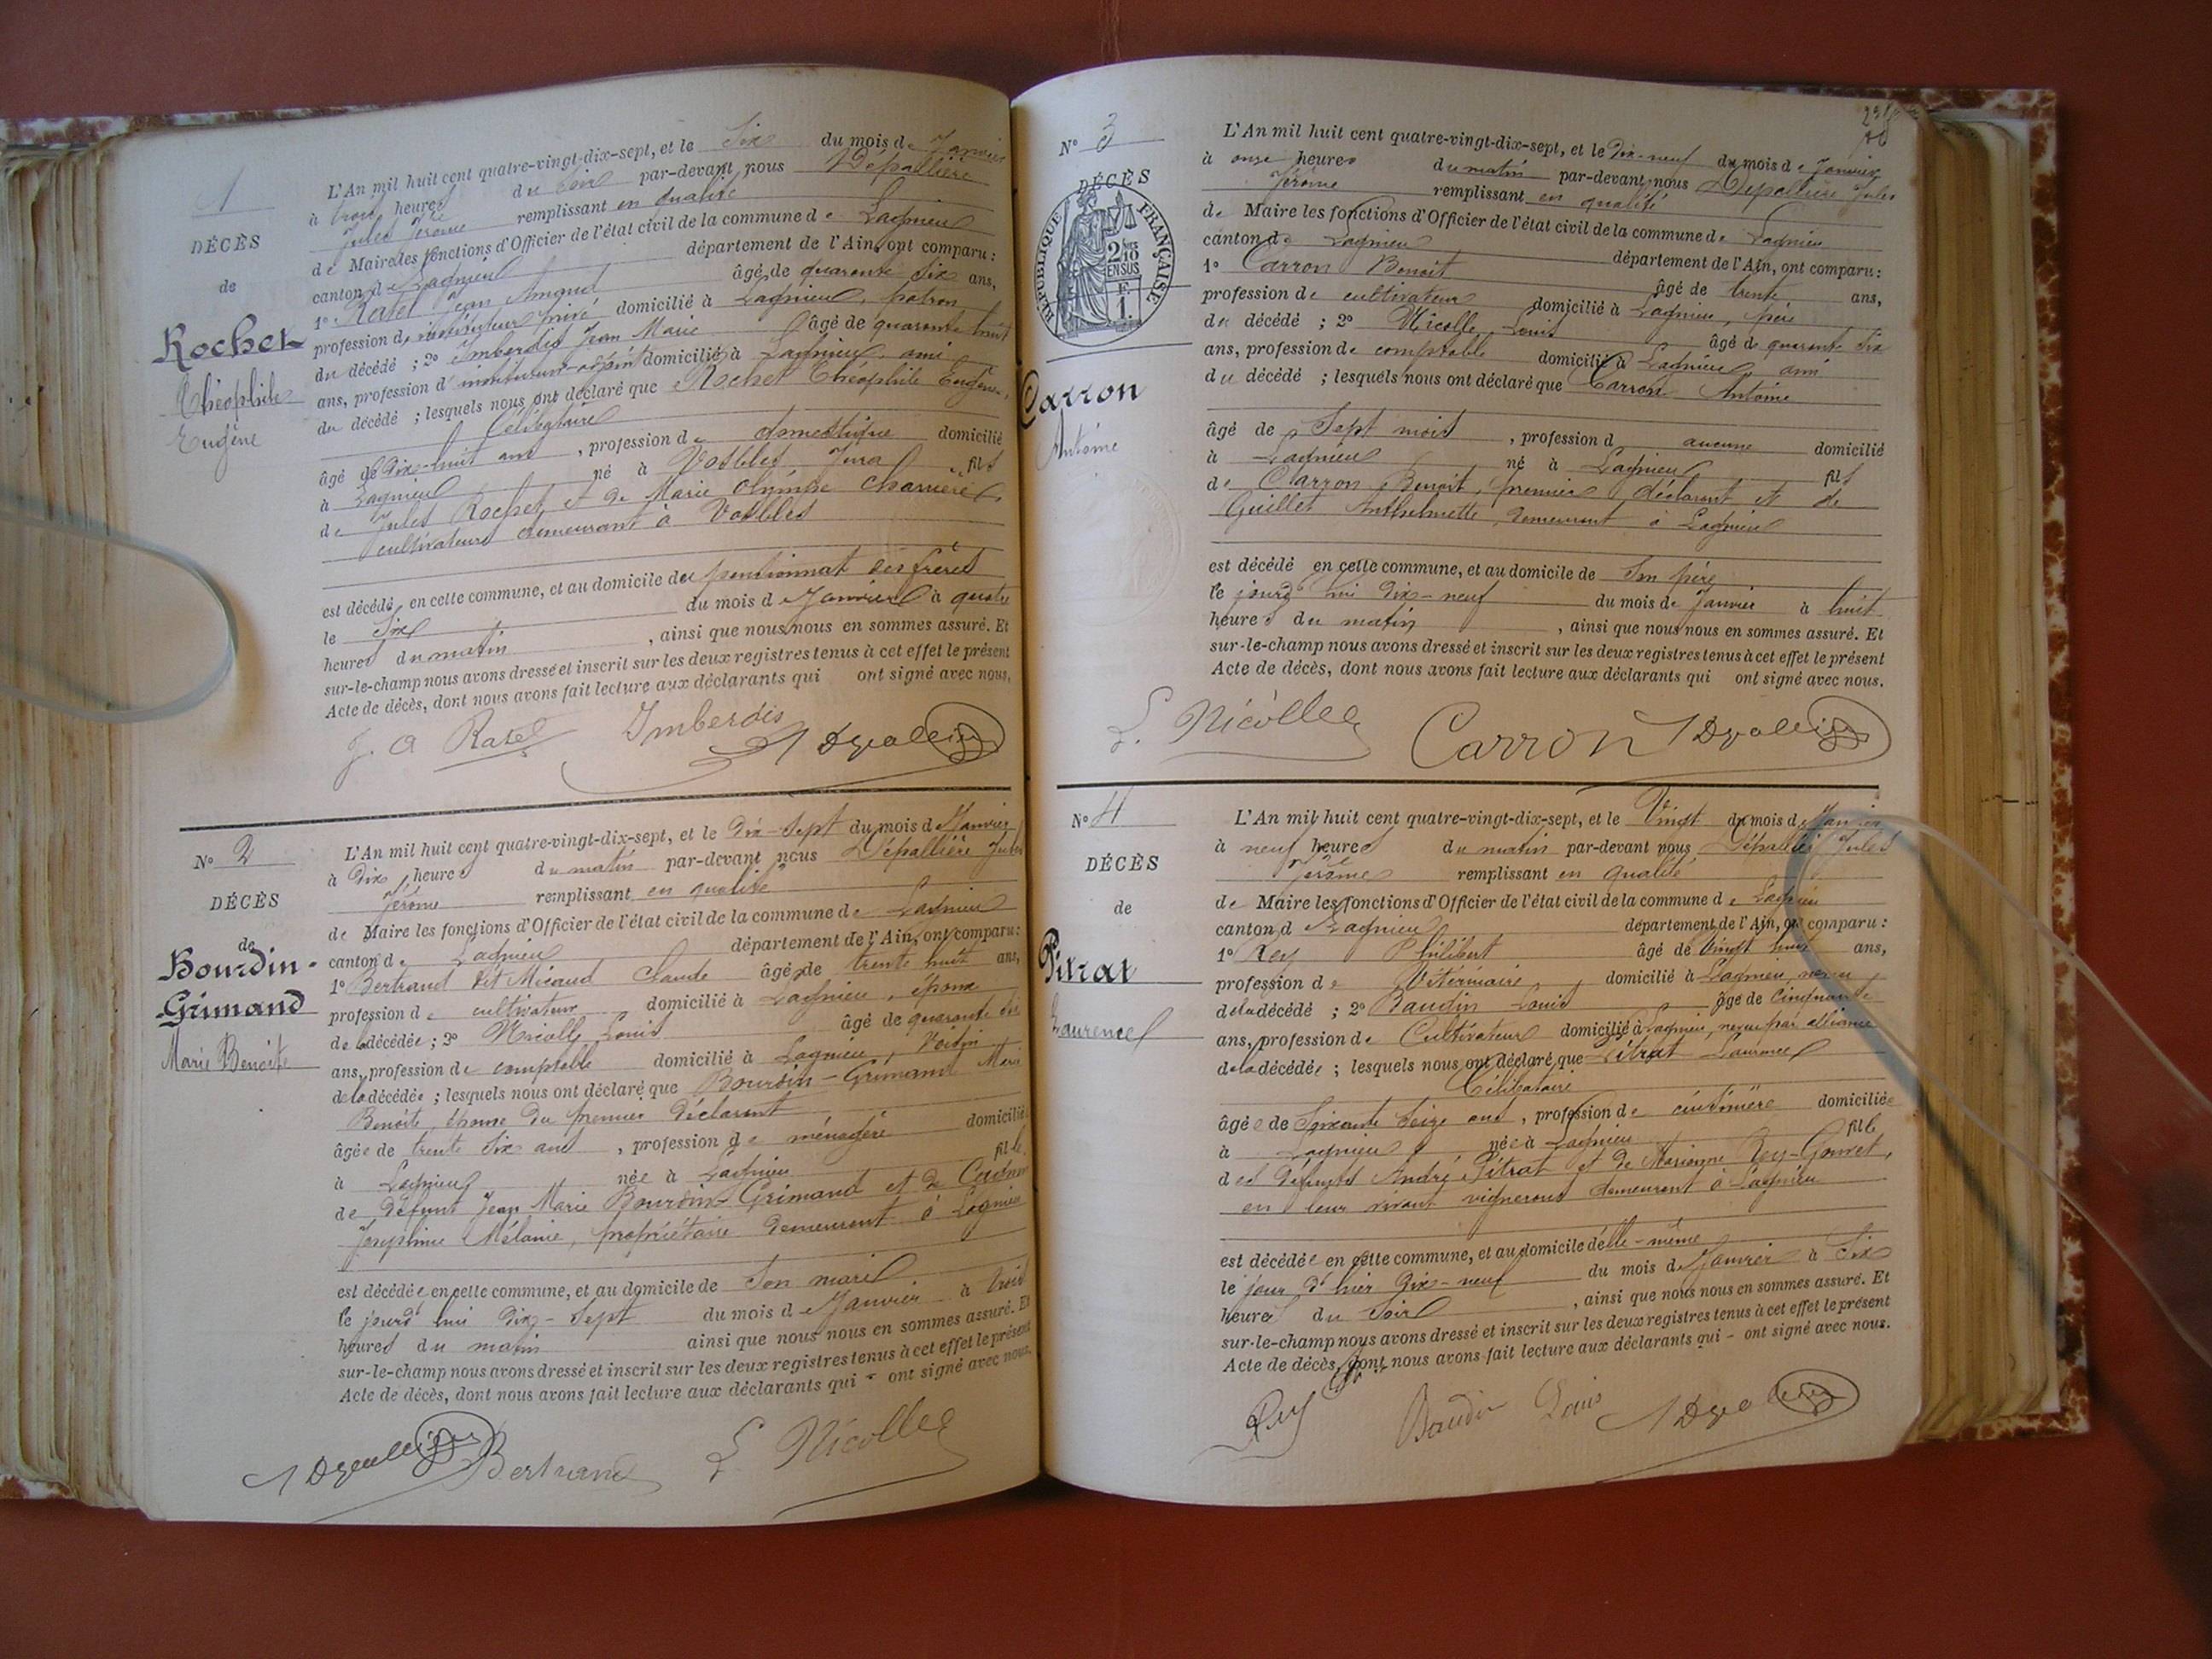 1
DÉCÈS
de
Rochet
Théophile
Eugène
L'An mil huit cent quatre-vingt-dix-sept, et le Six du mois de Janvier
à trois heures du soir par-devant nous Dépallière
Jules Jérôme remplissant en qualité
de Maire les fonctions d'Officier de l'état civil de la commune de Lagnieu
canton de Lagnieu département de l'Ain, ont comparu :
1° Ratel Jean Amand âgé de quarante six ans,
profession d' instituteur privé domicilié à Lagnieu, patron
du décédé ; 2° Imberdis Jean Marie âgé de quarante huit
ans, profession d' instituteur-adjoint domicilié à Lagnieu, ami
du décédé ; lesquels nous ont déclaré que Rochet Théophile Eugène,
Célibataire
âgé de Dix-huit ans , profession de domestique domicilié
à Lagnieu né à Vosbles Jura fils
de Jules Rochet et de Marie Olympe Charrière,
cultivateurs demeurant à Vosbles
est décédé en cette commune, et au domicile du pensionnat des frères
le Six du mois de Janvier à quatre
heures du matin , ainsi que nous nous en sommes assuré. Et
sur-le-champ nous avons dressé et inscrit sur les deux registres tenus à cet effet le présent
Acte de décès, dont nous avons fait lecture aux déclarants qui ont signé avec nous.
J. A Ratel Imberdis
N° 2
DÉCÈS
de
Bourdin-
Grimaud
Marie Benoite
L'An mil huit cent quatre-vingt-dix-sept, et le Dix-Sept du mois de Janvier
à Dix heures du matin par-devant nous Dépallière Jules
Jérôme remplissant en qualité
de Maire les fonctions d'Officier de l'état civil de la commune de Lagnieu
canton de Lagnieu département de l'Ain, ont comparu :
1° Bertrand dit Micaud Claude âgé de trente huit ans,
profession de cultivateur domicilié à Lagnieu, époux
de la décédée ; 2° Nicolle Louis âgé de quarante six
ans, profession de comptable domicilié à Lagnieu, Voisin
de la décédée ; lesquels nous ont déclaré que Bourdin-Grimaud Marie
Benoite, épouse du premier déclarant
âgée de trente Six ans , profession de ménagère domiciliée
à Lagnieu née à Lagnieu fille
de défunt Jean Marie Bourdin-Grimaud et de
Joséphine Mélanie, propriétaire demeurant à Lagnieu
est décédée en cette commune, et au domicile de Son mari
le jourd'hui dix-Sept du mois de Janvier à trois
heures du matin ainsi que nous nous en sommes assuré. Et
sur-le-champ nous avons dressé et inscrit sur les deux registres tenus à cet effet le présent
Acte de décès, dont nous avons fait lecture aux déclarants qui - ont signé avec nous.
Bertrand L. Nicolle
N° 3
DÉCÈS
RÉPUBLIQUE FRANÇAISE
2/10 EN SUS
F. 1.
Carron
Antoine
L'An mil huit cent quatre-vingt-dix-sept, et le Dix-neuf du mois de Janvier
à onze heures du matin par-devant nous Dépallière Jules
Jérôme remplissant en qualité
de Maire les fonctions d'Officier de l'état civil de la commune de Lagnieu
canton de Lagnieu département de l'Ain, ont comparu :
1° Carron Benoit âgé de trente ans,
profession de cultivateur domicilié à Lagnieu, père
du décédé ; 2° Nicolle Louis âgé de quarante six
ans, profession de comptable domicilié à Lagnieu, ami
du décédé ; lesquels nous ont déclaré que Carron Antoine
âgé de Sept mois , profession d aucune domicilié
à Lagnieu né à Lagnieu fils
de Carron Benoit, premier déclarant et de
Guillet Anthelmette, demeurant à Lagnieu
est décédé en cette commune, et au domicile de Son père
le jourd'hui dix-neuf du mois de Janvier à huit
heures du matin , ainsi que nous nous en sommes assuré. Et
sur-le-champ nous avons dressé et inscrit sur les deux registres tenus à cet effet le présent
Acte de décès, dont nous avons fait lecture aux déclarants qui ont signé avec nous.
L. Nicolle Carron
N° 4
DÉCÈS
de
Pitrat
Laurence
L'An mil huit cent quatre-vingt-dix-sept, et le Vingt du mois de Janvier
à neuf heures du matin par-devant nous Dépallière Jules
Jérôme remplissant en qualité
de Maire les fonctions d'Officier de l'état civil de la commune de Lagnieu
canton d Lagnieu département de l'Ain, ont comparu :
1° Rey Philibert âgé de Vingt huit ans,
profession de Vétérinaire domicilié à Lagnieu, neveu
de la décédée ; 2° Baudin Louis âgé de Cinquante
ans, profession de Cultivateur domicilié à Lagnieu, neveu par alliance
de la décédée ; lesquels nous ont déclaré que Pitrat Laurence
Célibataire
âgée de Soixante Seize ans , profession de cuisinière domiciliée
à Lagnieu née à Lagnieu fille
des défunts André Pitrat et de Marianne Rey-Gourret,
en leur vivant vignerons demeurant à Lagnieu
est décédée en cette commune, et au domicile d'elle-même
le jour d'hier dix-neuf du mois de Janvier à Six
heures du Soir , ainsi que nous nous en sommes assuré. Et
sur-le-champ nous avons dressé et inscrit sur les deux registres tenus à cet effet le présent
Acte de décès, dont nous avons fait lecture aux déclarants qui - ont signé avec nous.
Rey Baudin Louis